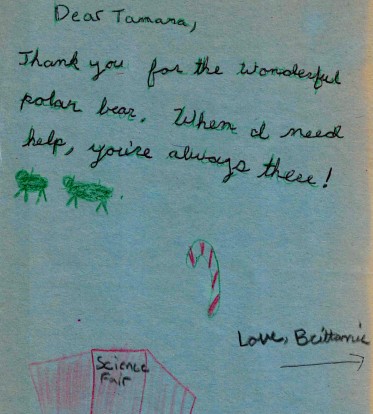 Dear Tamara,
Thank you for the wonderful
polar bear. When I need
help, you're always there!
Love, Brittanie
Science
Fair